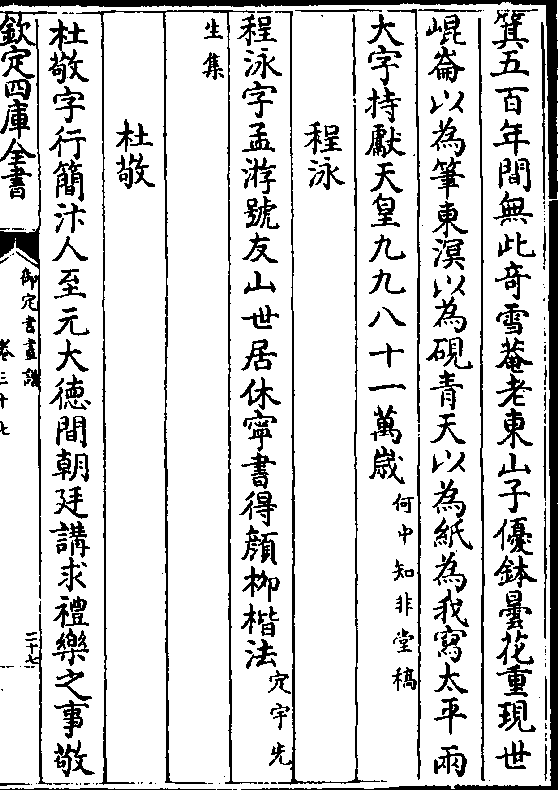 箕五百年間無此奇雪菴老東山子優鉢曇花重現世
崐崙以為筆東溟以為硯青天以為紙為我寫太平兩
大字持獻天皇九九八十一萬歲何中知非堂稿
程泳
程泳字孟游號友山世居休寧書得顔柳楷法定宇先
生集
杜敬
杜敬字行簡汴人至元大德間朝廷講求禮樂之事敬
欽定四庫全書
御定書畫譜
卷三十七
二十七